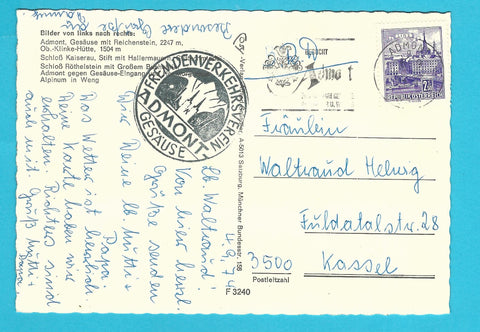 Bilder von links nach rechts:
Admont, Gesäuse mit Reichenstein, 2247 m,
Ob.-Klinke-Hütte, 1504 m
Schloß Kaiserau, Stift mit Hallermauern
Schloß Röthelstein mit Großem B
Admont gegen Gesäuse-Eingang
Alpinum in Weng
FREMDENVERKEHRSVEREIN
ADMONT
GESÄUSE
ADMONT
REPUBLIK ÖSTERREICH
A-5013 Salzburg, Münchner Bundesstr. 156
F 3240
4.9.74
Lb. Waltraud!
Von hier herzl.
Grüße senden
Dir Deine lb. Mutti +
Papa.
Das Wetter ist herrlich.
Deine Karte haben wir
erhalten. Richters sind
auch mit. Gruß Mutti +
Papa
Besondere
Grüße an
Fräulein
Waltraud Helwig
Fuldatalstr. 28
3500 Kassel
Postleitzahl